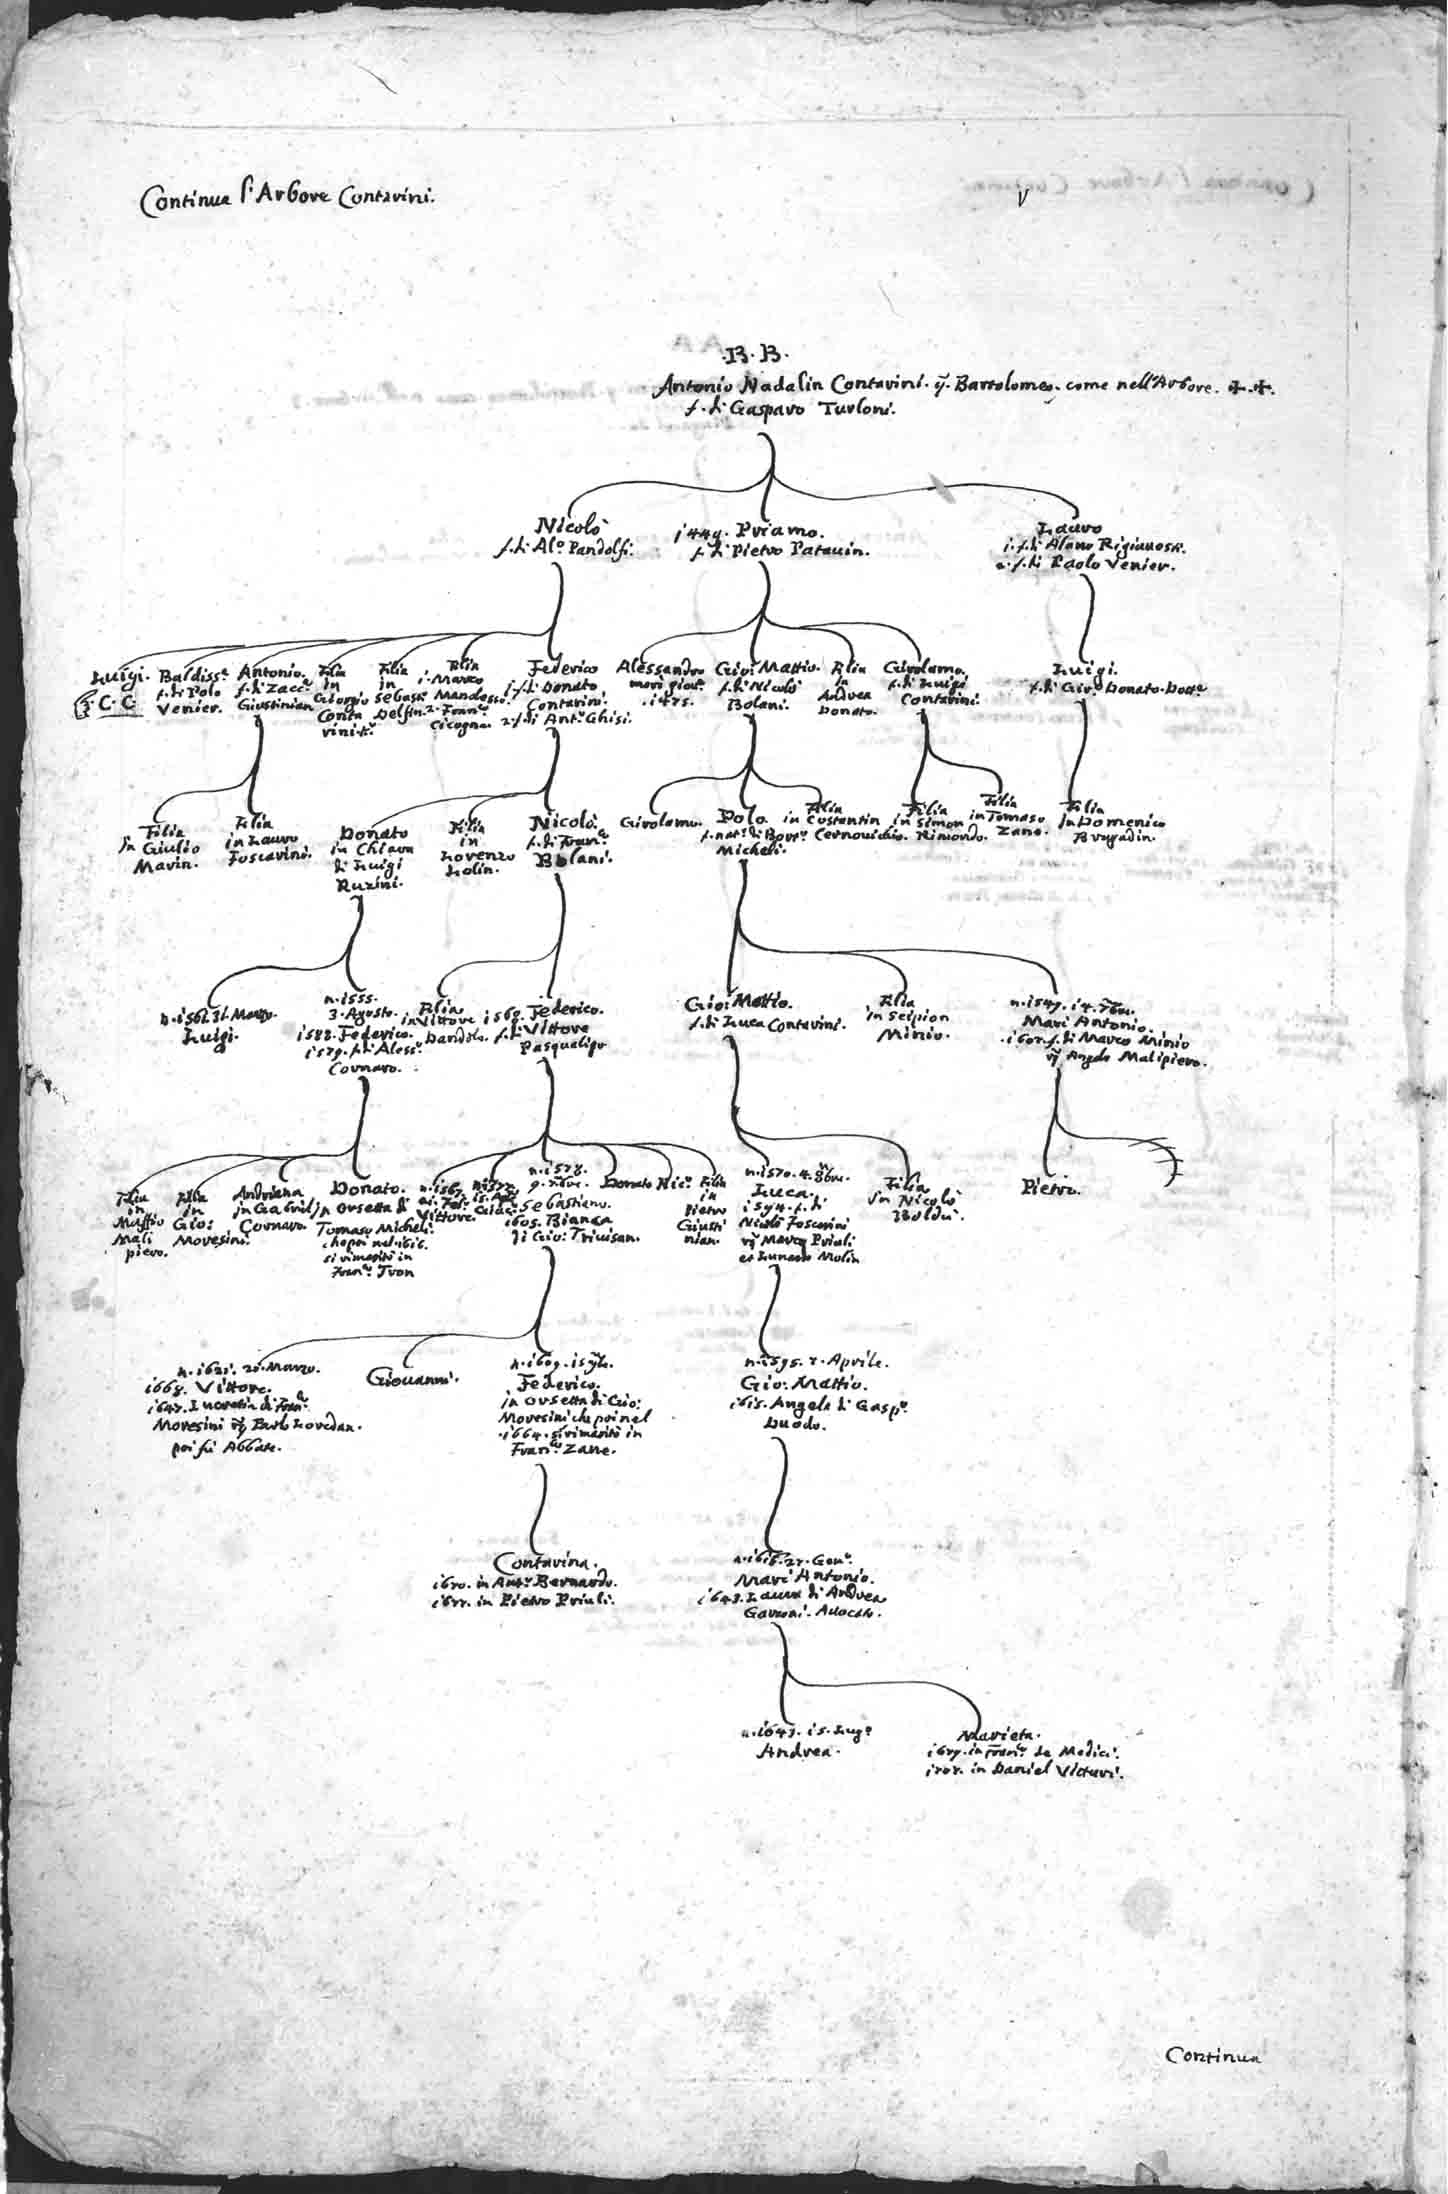 Continua l'Arbore Contarini.
V
.B.B.
Antonio Nadalin Contarini. q. Bartolomeo. come nell'Arbore. ✠.✠.
f. di Gasparo Turloni.
Nicolò
f. di Al.º Pandolfi.
1449. Priamo.
f. di Pietro Patavin.
Lauro
1. f. di Alano
2. f. di Paolo Venier.
Luigi.
C.C
Baldiss.ª
f. di Polo
Venier.
Antonio.
f. di Zacc.ª
Giustinian
Filia
in
Giorgio
Conta
rini
Filia
in
Sebast.
Delfin.
Filia
1. Marco
2. Fran.º
Cicogna
Federico
1. f. di Donato
Contarini.
2. f. di Ant.º Ghisi.
Alessandro
morì giov.e
.1475.
Gio: Mattio.
f. di Nicolò
Bolani.
Filia
in
Andrea
Donato.
Girolamo.
f. di Luigi
Contarini.
Luigi.
f. di Gir.º Donato. Dott.e
Filia
in Giulio
Marin.
Filia
in Lauro
Foscarini.
Donato
in Chiara
di Luigi
Ruzini.
Filia
in
Lorenzo
Lolin.
Nicolò.
f. di Fran.º
Bolani.
Girolamo.
Polo.
f. nat.ª di Bort.º
Micheli.
Filia
in Costantin
Cernovichio.
Filia
in Simon
Rimondo.
Filia
in Tomaso
Zane.
Filia
in Domenico
Bragadin.
n. 1561. 31. Marzo.
Luigi.
n. 1555.
3. Agosto.
1588. Federico.
1579. f. di Aless.º
Cornaro.
Filia
in Vittore
Dandolo.
1560. Federico.
f. di Vittore
Pasqualigo
Gio: Mattio.
f. di Luca Contarini.
Filia
in Scipion
Minio.
n. 1547. 14. 7bre.
Marc'Antonio.
.1602. f. di Marco Minio
rꝫ Angelo Malipiero.
Filia
in
Maffio
Mali
piero.
Filia
in
Gio:
Moresini.
Andriana
in Gabriel
Cornaro.
Donato.
in Orsetta di
Tomaso Micheli.
che poi nel 1616.
si rimaritò in
Fran.º Tron
n. 1567.
Vittore.
n. 1572.
Giac.º
n. 1578.
9. 7bre.
Sebastiano.
1605. Bianca
di Gio: Trivisan.
Donato
Nic.º
Filia
in
Pietro
Giusti
nian.
n. 1570. 4. 8bre.
Luca.
1594. f. di
Nicolò Foscarini
rꝫ Marco Priuli
et Lunardo Molin
Filia
in Nicolò
Boldù.
Pietro.
n. 1621. 20. Marzo.
1668. Vittore.
1647. Lucretia di Fran.º
Moresini rꝫ Barb.º Loredan.
poi fù Abbate.
Giovanni.
n. 1609. 15
Federico.
in Orsetta di Gio:
Moresini che poi nel
.1664. si rimaritò in
Fran.º Zane.
n. 1595. 2. Aprile.
Gio: Mattio.
1615. Angela di Gasp.º
Duodo.
Contarina.
1670. in Ant.º Bernardo.
1677. in Pietro Priuli.
n. 1616. 27. Gen.º
Marc'Antonio.
1643. Laura di Andrea
Garzoni. Avocato.
n. 1643. 15. Lug.º
Andrea.
Marieta.
1679. in Fran.º de Medici.
in Daniel Vitturi.
Continua